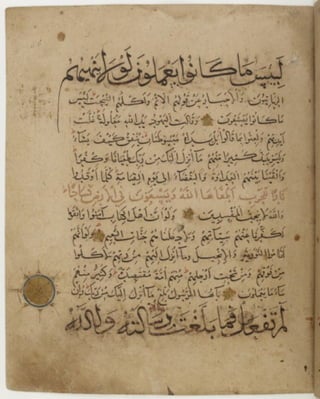 لبيس ما كانوا يعملون لولا ينهيهم
الربانيون والاحبار عن قولهم الاثم واكلهم السحت لبيس
ما كانوا يصنعون وقالت اليهود يد الله مغلولة غلت
ايديهم ولعنوا بما قالوا بل يداه مبسوطتان ينفق كيف يشاء
وليزيدن كثيرا منهم ما انزل اليك من ربك طغيانا وكفرا
والقينا بينهم العداوة والبغضاء الى يوم القيامة كلما اوقدوا
نارا للحرب اطفاها الله ويسعون في الارض فسادا
والله لا يحب المفسدين ولو ان اهل الكتاب امنوا واتقوا
لكفرنا عنهم سياتهم ولادخلناهم جنات النعيم ولو انهم
اقاموا التورية والانجيل وما انزل اليهم من ربهم لاكلوا
من فوقهم ومن تحت ارجلهم منهم امة مقتصدة وكثير منهم
ساء ما يعملون يا ايها الرسول بلغ ما انزل اليك من ربك وان
لم تفعل فما بلغت رسالته والله